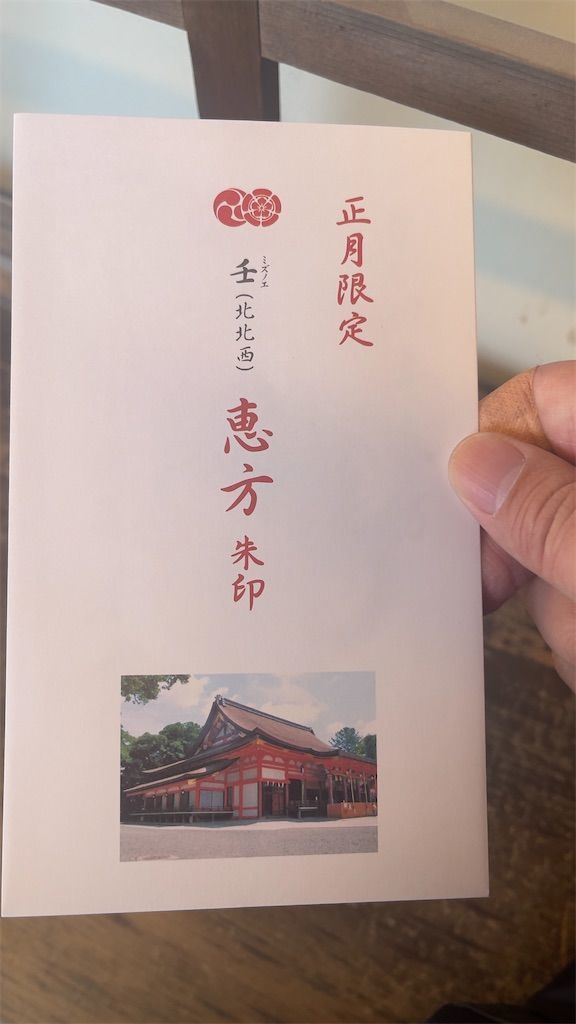 正月限定
ミズノエ
壬(北北西)恵方朱印